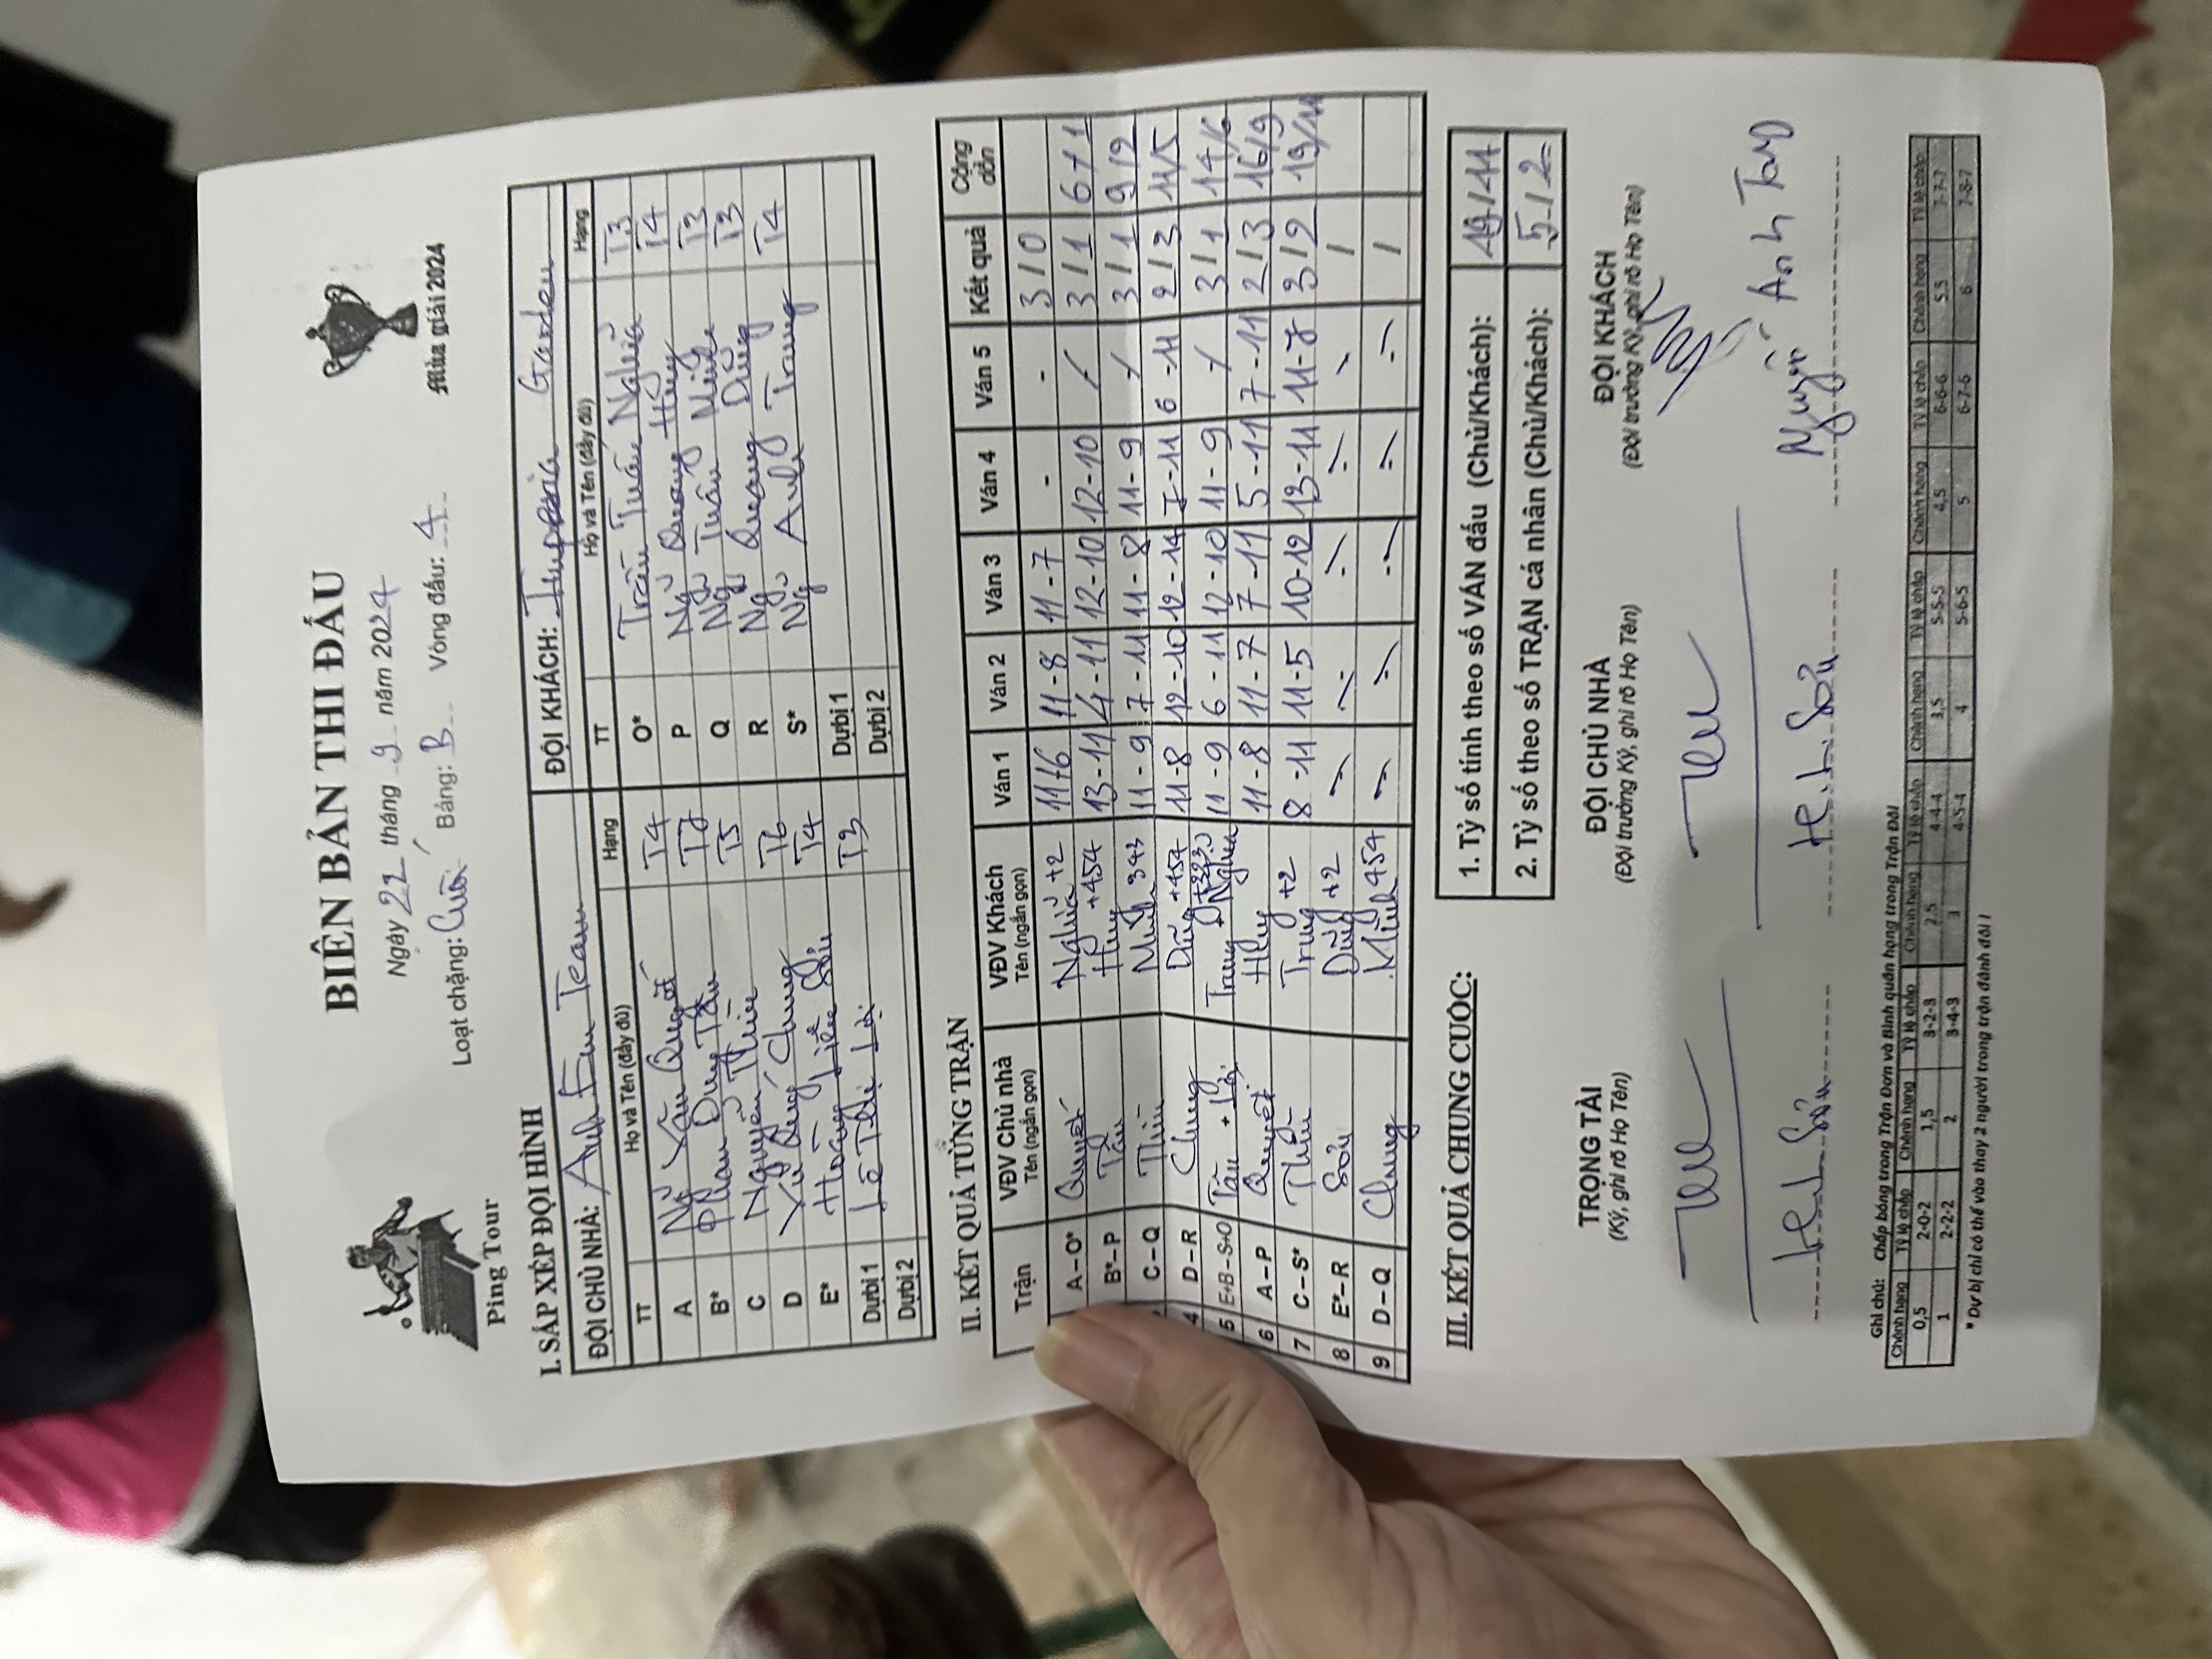 BIÊN BẢN THI ĐẤU
Ngày 22 tháng 9 năm 2024
Loạt chặng: Cuối Bảng: B Vòng đấu: 4
Ping Tour
Mùa giải 2024
I. SẮP XẾP ĐỘI HÌNH
ĐỘI CHỦ NHÀ: Anh Em Team ĐỘI KHÁCH: Imperia Garden
TT Họ và Tên (đầy đủ) Hạng TT Họ và Tên (đầy đủ) Hạng
A Ng̃ Văn Quyết T4 O* Trần Tuấn Nghĩa T3
B* Phan Duy Tân P Ng̃ Quang Huy T4
C Nguyễn T5 Q Ng̃ Tuấn Minh T3
D Vũ Quý Chung T6 R Ng̃ Quang Dũng T3
E* Hoàng Liên Sơn T4 S* Ng̃ Anh Trung T4
Dự bị 1 Lê Thị Lợi T3 Dự bị 1
Dự bị 2 Dự bị 2
II. KẾT QUẢ TỪNG TRẬN
Trận VĐV Chủ nhà Tên (ngắn gọn) VĐV Khách Tên (ngắn gọn) Ván 1 Ván 2 Ván 3 Ván 4 Ván 5 Kết quả Cộng dồn
A – O* Quyết Nghĩa +2 11-6 11-8 11-7 - - 3/0
B* – P Tân Huy +454 13-11 4-11 12-10 12-10 / 3/1 6/1
C – Q Minh 343 11-9 7-11 11-8 11-9 / 3/1 9/2
4 D – R Chung Dũng +454 11-8 12-10 12-14 7-11 6-11 2/3 11/5
5 E+B – S+O Tân + Lợi Trung + Nghĩa 11-9 6-11 12-10 11-9 / 3/1 14/6
6 A – P Quyết Huy 11-8 11-7 7-11 5-11 7-11 2/3 16/9
7 C – S* Trung +2 8-11 11-5 10-12 13-11 11-7 3/2 19/11
8 E* – R Sơn Dũng +2 /
9 D – Q Chung Minh 454 /
III. KẾT QUẢ CHUNG CUỘC:
1. Tỷ số tính theo số VÁN đấu (Chủ/Khách): 19/11
2. Tỷ số theo số TRẬN cá nhân (Chủ/Khách): 5/2
TRỌNG TÀI ĐỘI CHỦ NHÀ ĐỘI KHÁCH
(Ký, ghi rõ Họ Tên) (Đội trưởng Ký, ghi rõ Họ Tên) (Đội trưởng Ký, ghi rõ Họ Tên)
H.L Sơn H.L. Sơn Nguyễn Anh
Ghi chú: Chấp bóng trong Trận Đơn và Bình quân hạng trong Trận Đôi
Chênh hạng Tỷ lệ chấp Chênh hạng Tỷ lệ chấp Chênh hạng Tỷ lệ chấp Chênh hạng Tỷ lệ chấp Chênh hạng Tỷ lệ chấp Chênh hạng Tỷ lệ chấp
0,5 2-0-2 1,5 3-2-3 2,5 4-4-4 3,5 5-5-5 4,5 6-6-6 5,5 7-7-7
1 2-2-2 2 3-4-3 3 4-5-4 4 5-6-5 5 6-7-6 6 7-8-7
* Dự bị chỉ có thể vào thay 2 người trong trận đánh đôi !